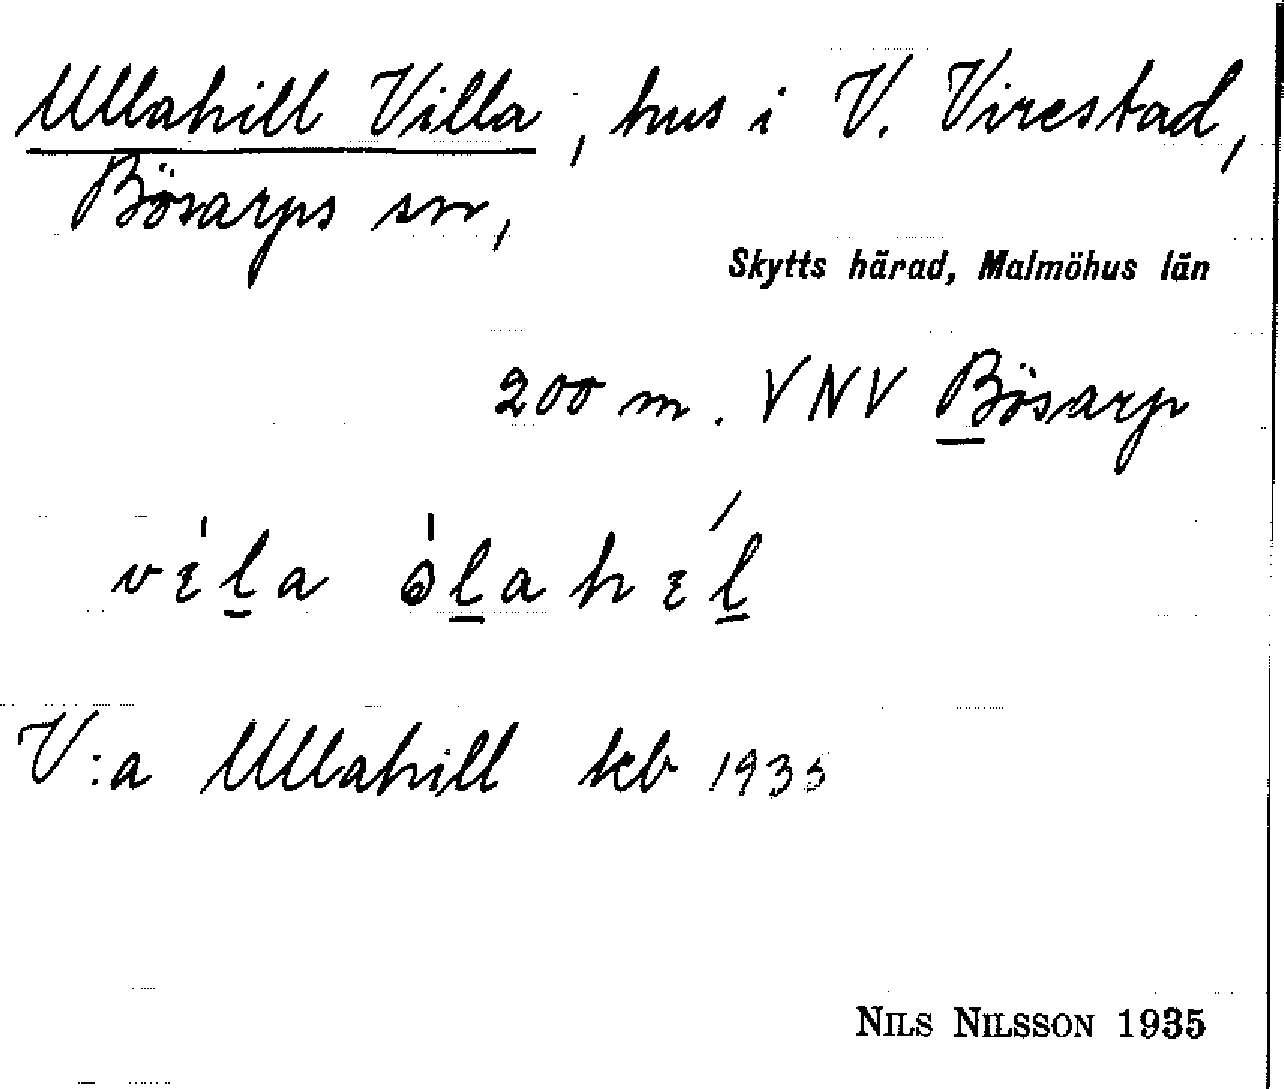 Ullahill Villa, hus i V. Virestad,
Bösarps sn,
Skytts härad, Malmöhus län
200 m. VNV Bösarp
V:a Ullahill kb 1935
NILS NILSSON 1935